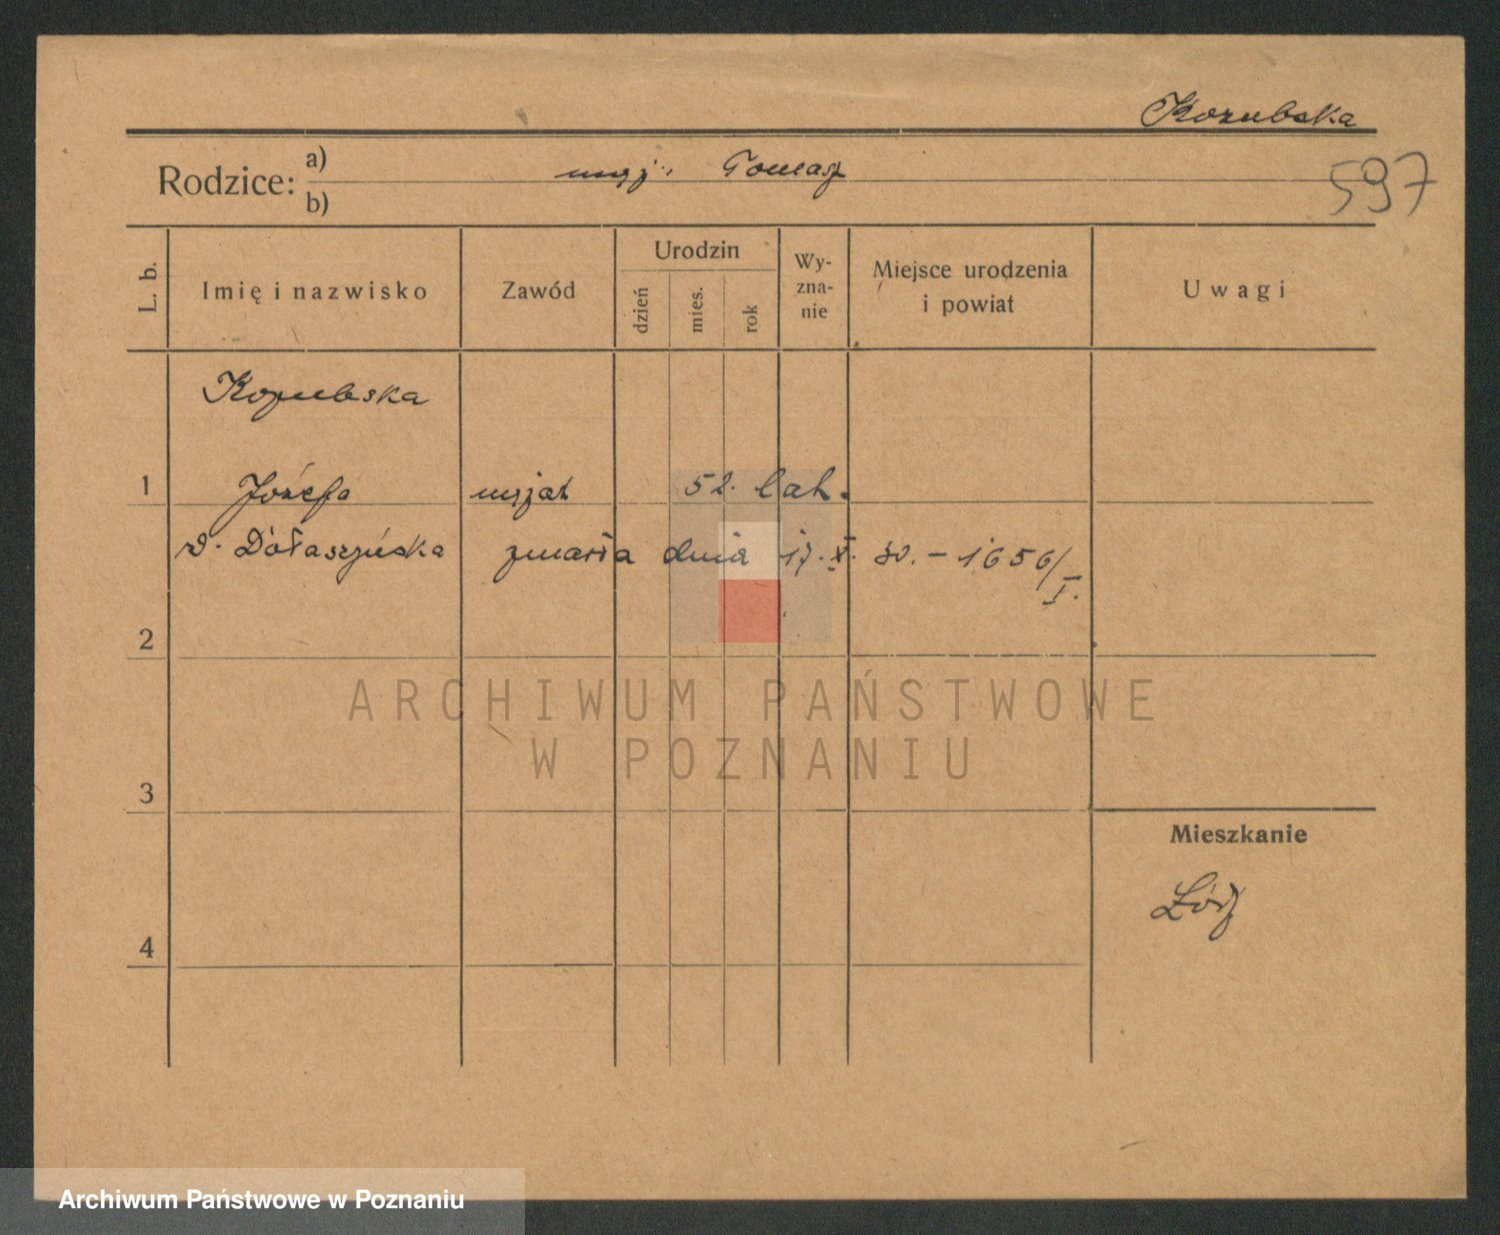 Kozubska
Rodzice: a) mąż: Tomasz
b)
597
L. b.
Imię i nazwisko
Zawód
Urodzin
dzień
mies.
rok
Wy-
zna-
nie
Miejsce urodzenia
i powiat
Uwagi
Kozubska
1 Józefa mężat 52. lat.
d. Dołaszyńska zmarła dnia 17. X. 30. – 1656/I.
2
ARCHIWUM PAŃSTWOWE
W POZNANIU
3
Mieszkanie
Łódź
4
Archiwum Państwowe w Poznaniu